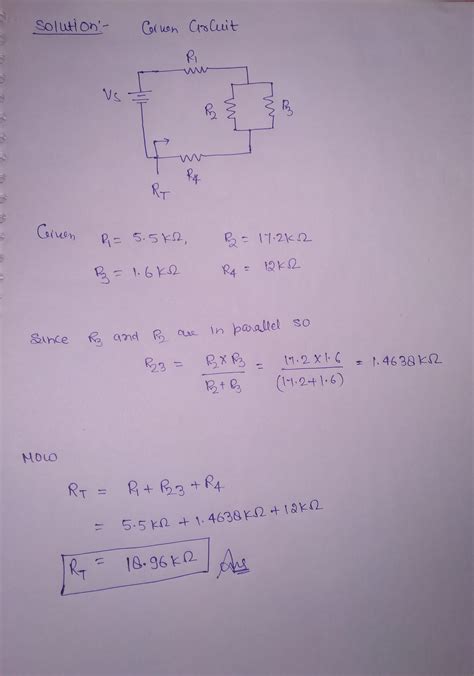 Solution:- Given Circuit
R1
Vs
R2
R3
R4
RT
Given R1 = 5.5 KΩ, R2 = 17.2 KΩ
R3 = 1.6 KΩ R4 = 12 KΩ
Since R3 and R2 are in parallel so
R23 = R2 × R3 / R2 + R3 = 17.2 × 1.6 / (17.2 + 1.6) = 1.4638 KΩ
Now
RT = R1 + R23 + R4
= 5.5 KΩ + 1.4638 KΩ + 12 KΩ
RT = 18.96 KΩ Ans